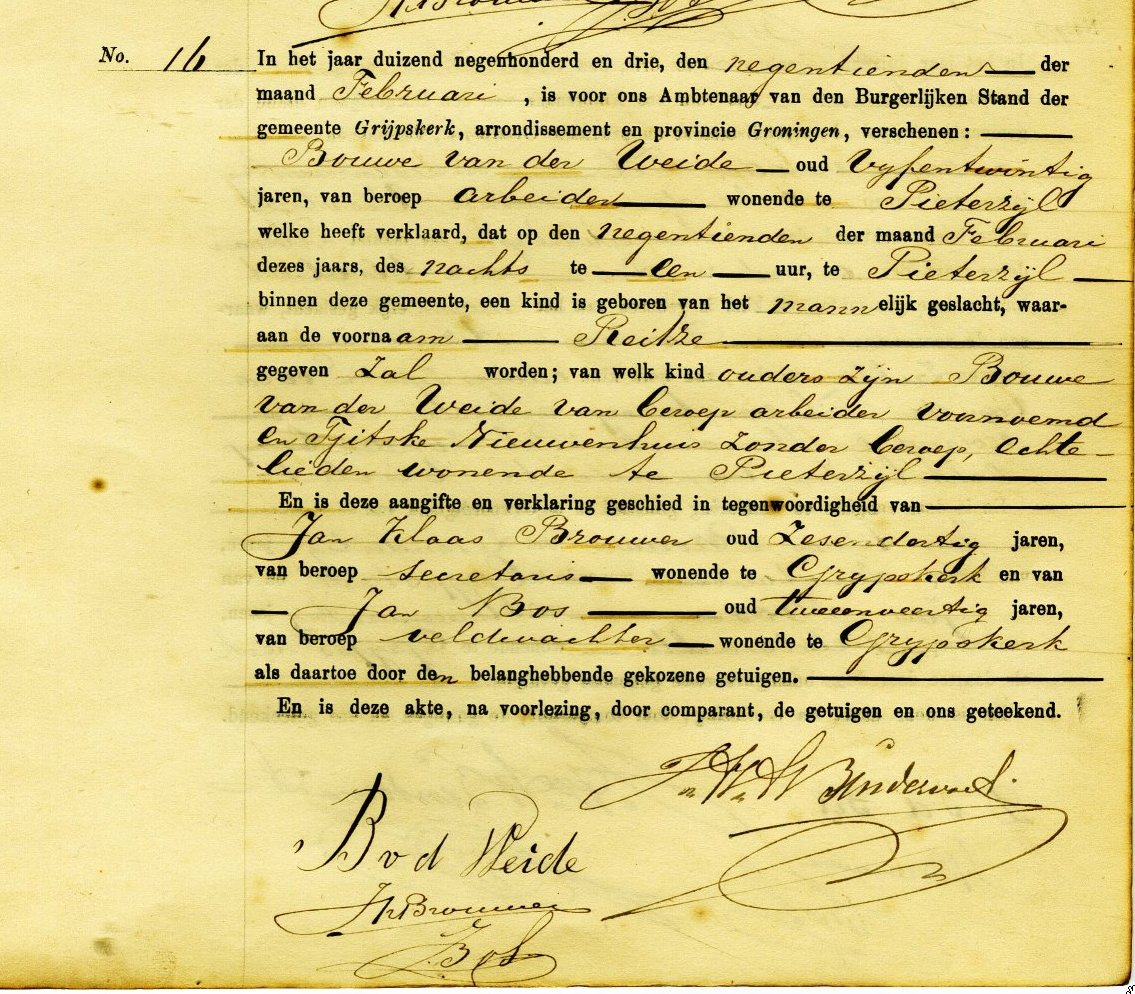 No. 16
In het jaar duizend negenhonderd en drie, den negentienden der
maand Februari, is voor ons Ambtenaar van den Burgerlijken Stand der
gemeente Grijpskerk, arrondissement en provincie Groningen, verschenen:
Bouwe van der Weide oud vyfentwintig
jaren, van beroep arbeider wonende te Pieterzijl
welke heeft verklaard, dat op den negentienden der maand Februari
dezes jaars, des nachts te een uur, te Pieterzijl
binnen deze gemeente, een kind is geboren van het mannelijk geslacht, waar-
aan de voornaam Reitze
gegeven zal worden; van welk kind ouders zijn Bouwe
van der Weide van beroep arbeider voornoemd
en Tjitske Nieuwenhuis zonder beroep, echte-
lieden wonende te Pieterzijl
En is deze aangifte en verklaring geschied in tegenwoordigheid van
Jan Klaas Brouwer oud zesendertig jaren,
van beroep secretaris wonende te Grypskerk en van
Jan Bos oud tweeenveertig jaren,
van beroep veldwachter wonende te Grypskerk
als daartoe door den belanghebbende gekozene getuigen.
En is deze akte, na voorlezing, door comparant, de getuigen en ons geteekend.
B v d Weide
JKBrouwer
J Bos